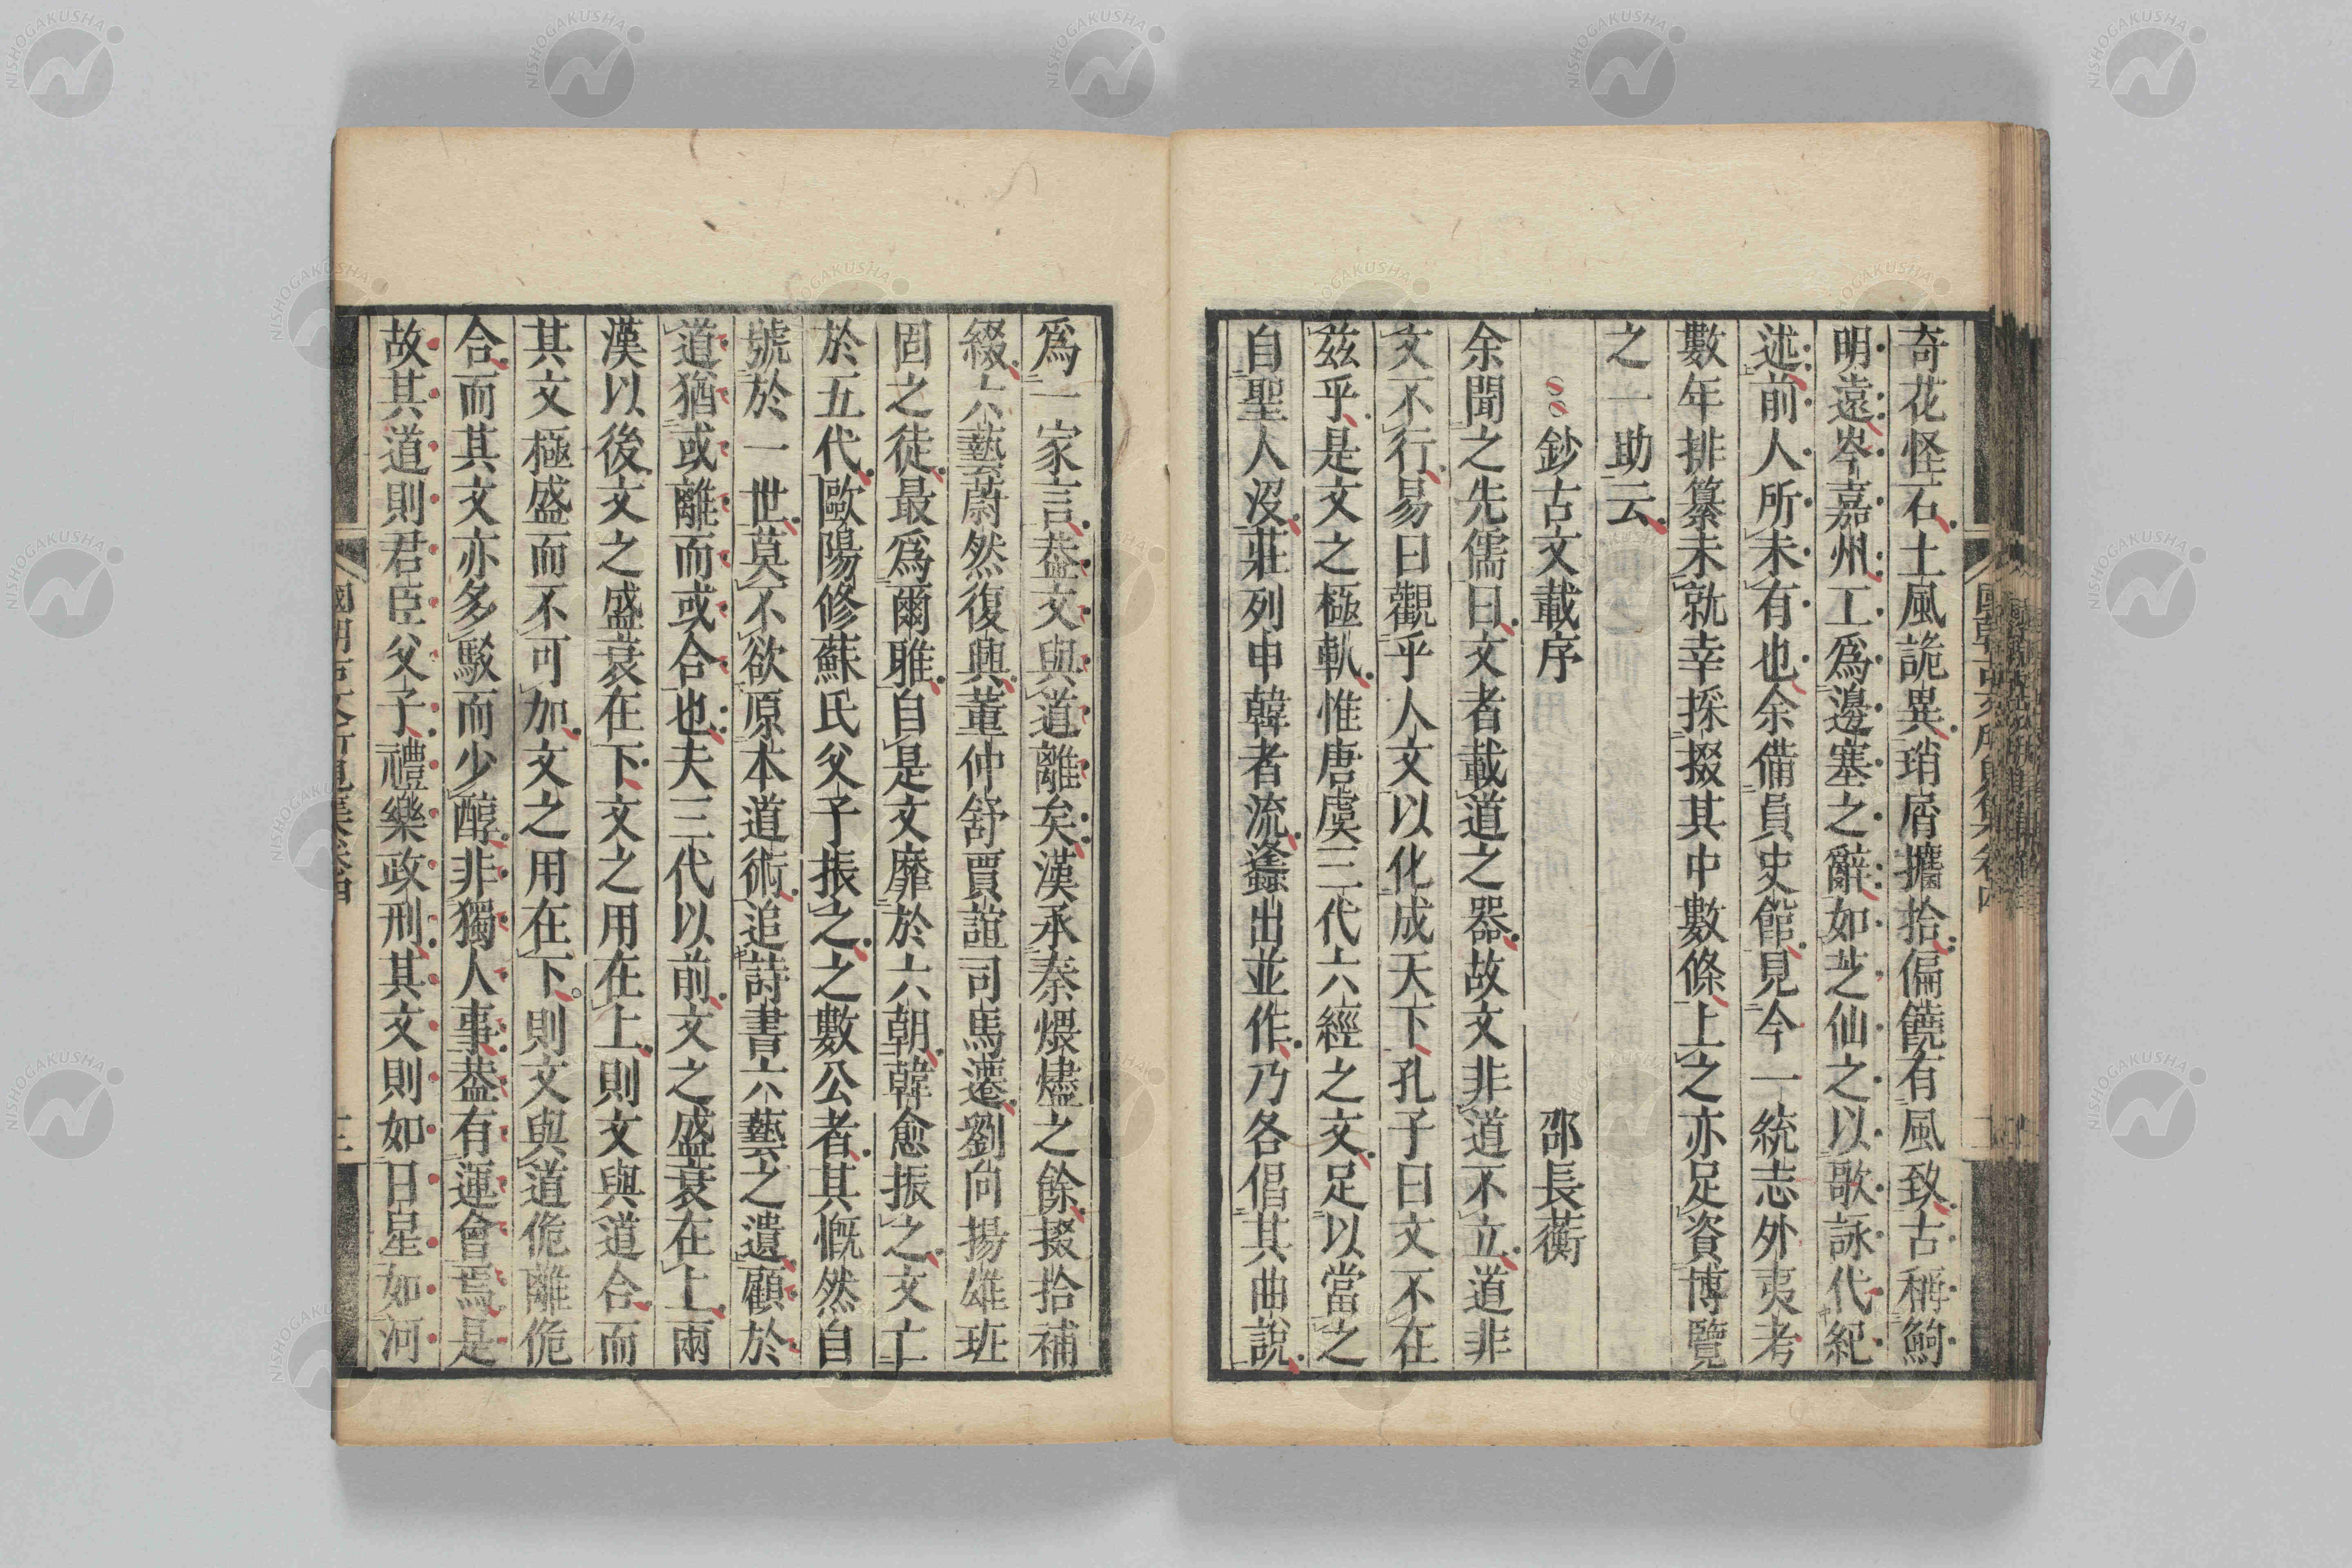 奇花怪石土風詭異瑣屑攟拾偏饒有風致古稱鮈
明遠岑嘉州工爲邊塞之辭如芝仙之以歌詠代紀
述前人所未有也余備員史館見今一統志外夷考
數年排纂未就幸採掇其中數條上之亦足資博覽
之一助云
鈔古文載序 邵長蘅
余聞之先儒曰文者載道之器故文非道不立道非
文不行易曰觀乎人文以化成天下孔子曰文不在
茲乎是文之極軌惟唐虞三代六經之文足以當之
自聖人沒莊列申韓者流蠭出並作乃各倡其曲說
爲一家言葢文與道離矣漢承秦煨燼之餘掇拾補
綴六藝蔚然復興董仲舒賈誼司馬遷劉向揚雄班
固之徒最爲爾雅自是文靡於六朝韓愈振之文亡
於五代歐陽修蘇氏父子振之之數公者其慨然自
號於一世莫不欲原本道術追詩書六藝之遺顧於
道猶或離而或合也夫三代以前文之盛衰在上兩
漢以後文之盛衰在下文之用在上則文與道合而
其文極盛而不可加文之用在下則文與道佹離佹
合而其文亦多駁而少醇非獨人事葢有運會焉是
故其道則君臣父子禮樂政刑其文則如日星如河